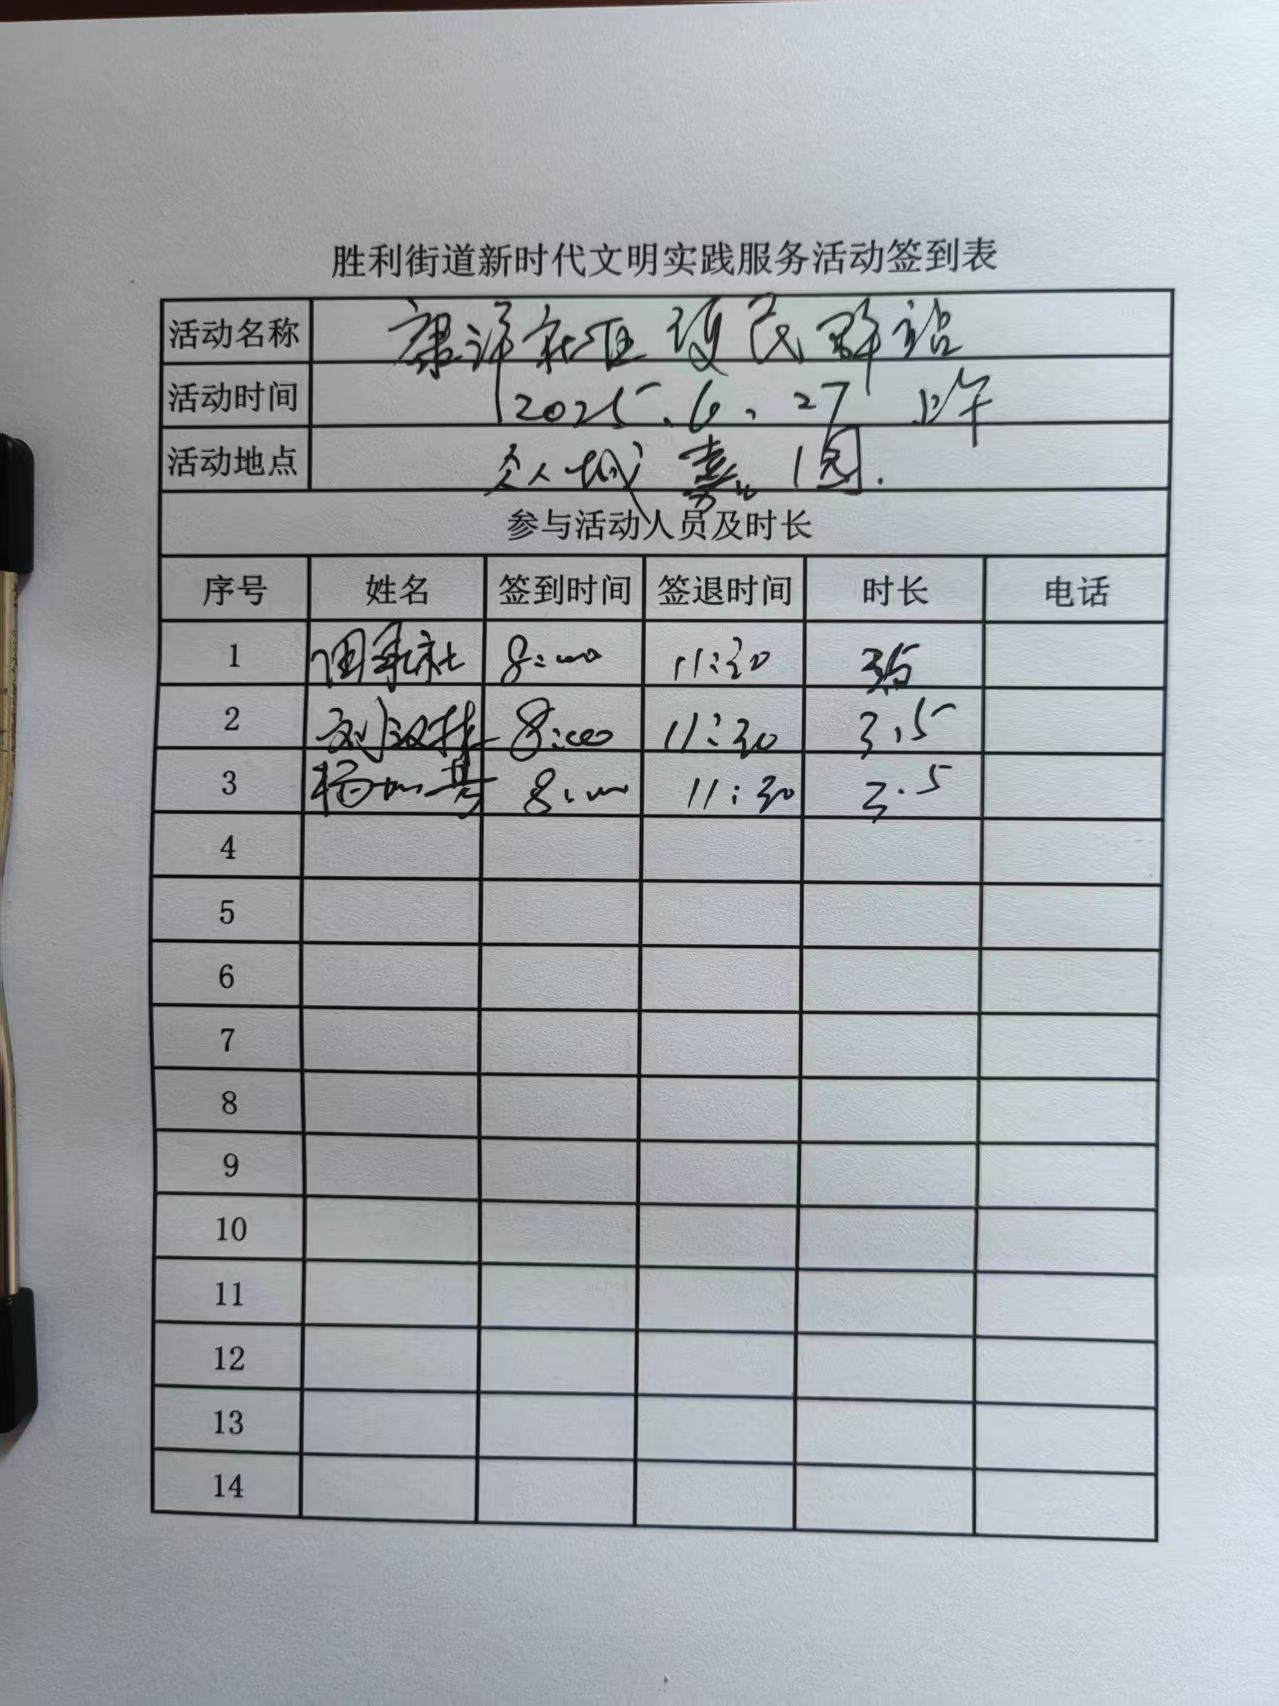 胜利街道新时代文明实践服务活动签到表
活动名称 康洋社区便民驿站
活动时间 2025.6.27 上午
活动地点 嘉园.
参与活动人员及时长
序号 姓名 签到时间 签退时间 时长 电话
1 8:00 11:30 3.5
2 刘汉桂 8:00 11:30 3.5
3 杨 8:00 11:30 3.5
4
5
6
7
8
9
10
11
12
13
14